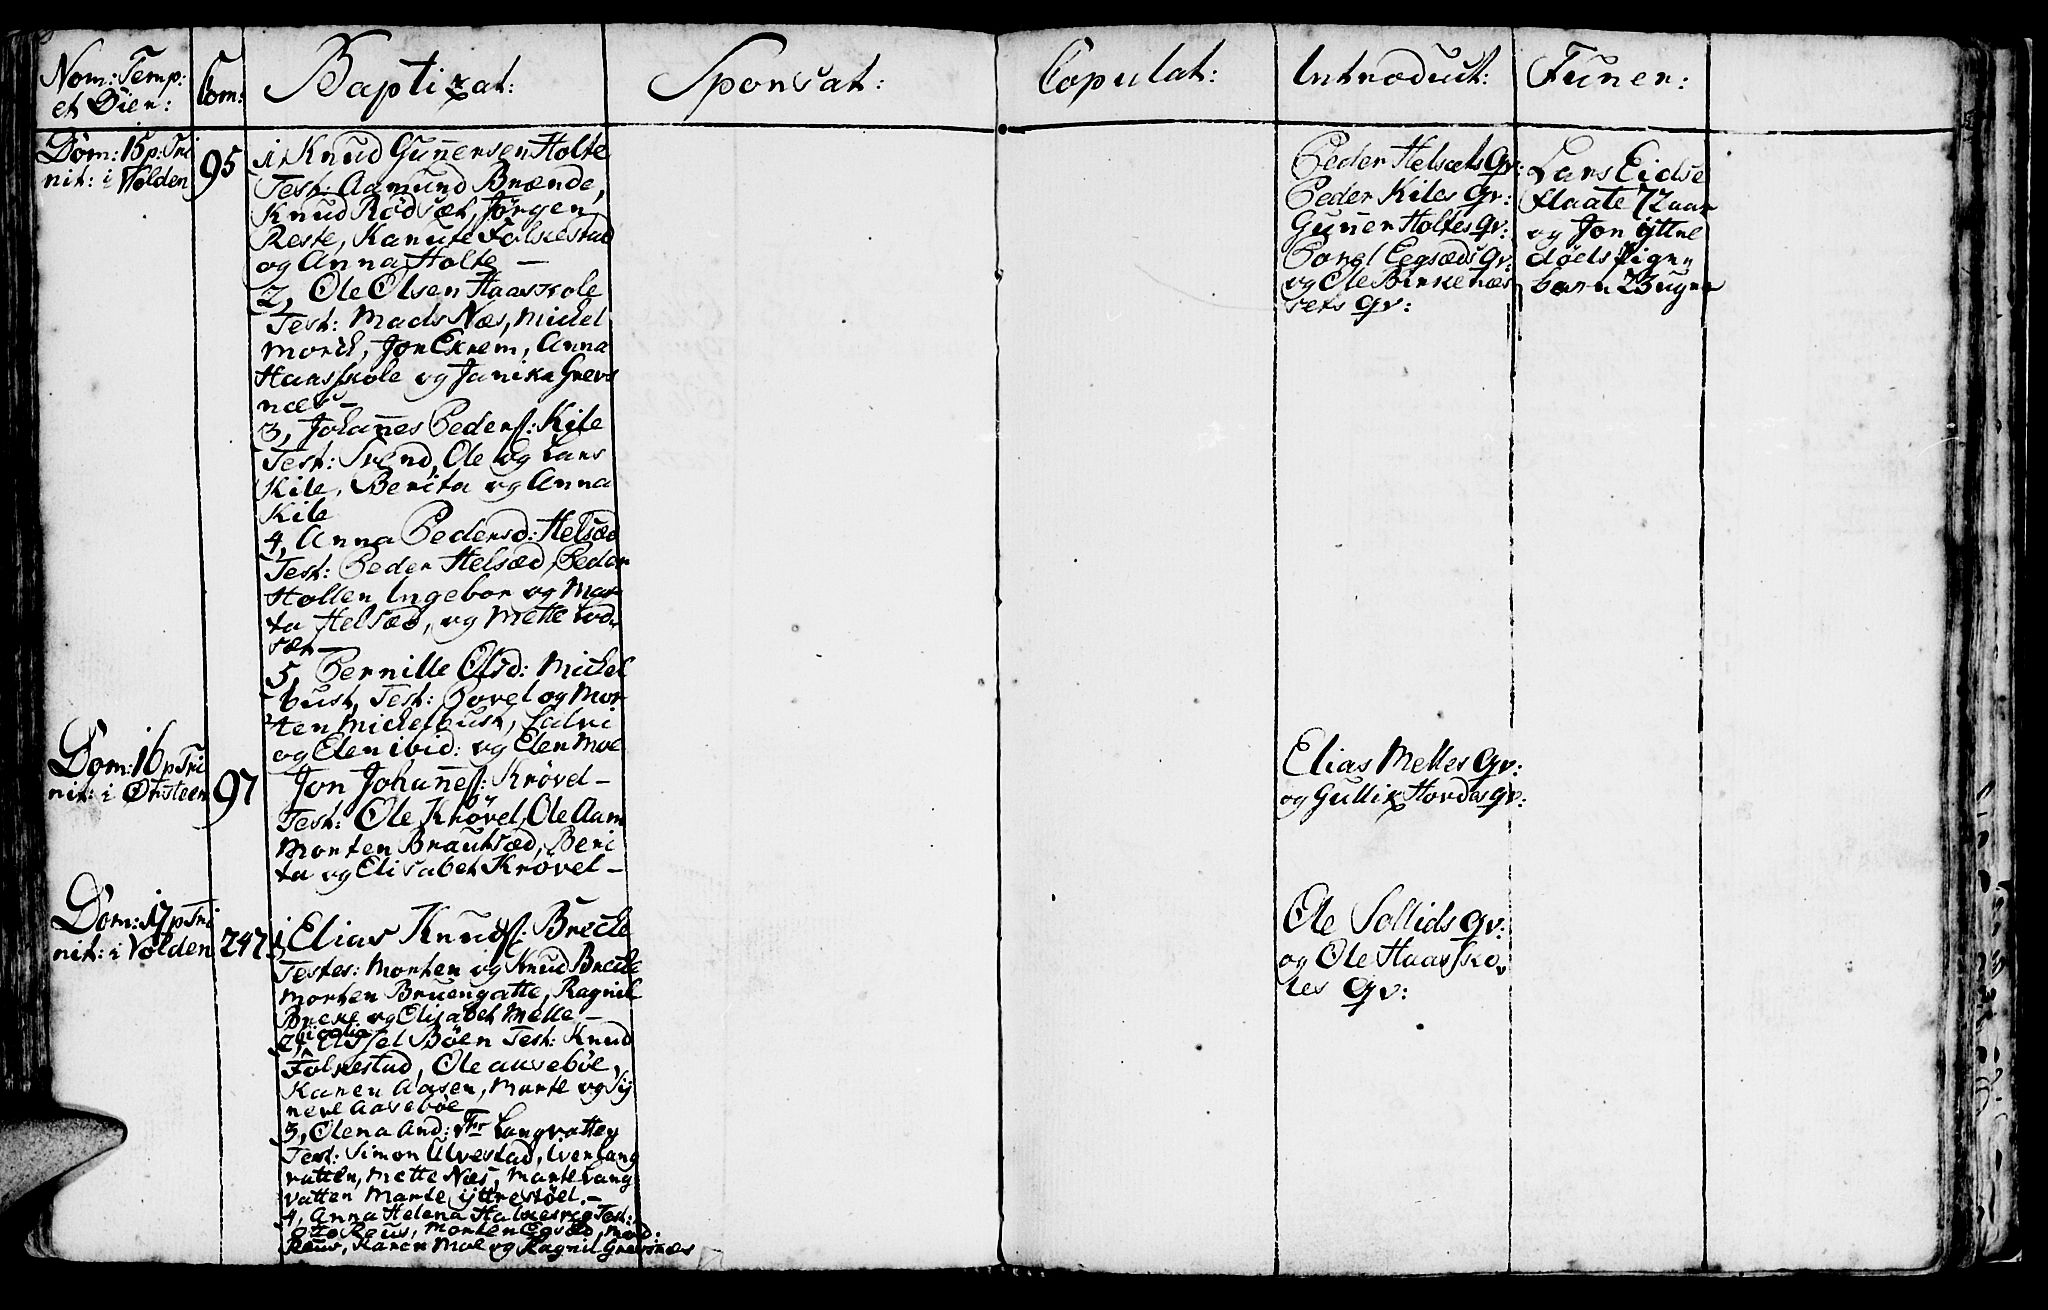 Nom: Temp:
et Dier:
Com:
Baptizat:
Sponsat:
Copulat:
Introduct:
Funer:
Dom: 15 p: Tri
nit: i Wolden
95
1, Knud Gunnersen Holte
Test: Aamund Brænde,
Knud Rødsæt, Jørgen
Reste, Kanute Folkestad
og Anna Holte —
2, Ole Olsen Haaskole
Test: Mads Næs, Michel
Morck, Jon Exrem, Anna
Haasskole og Janika Grevs
næs —
3, Johannes Peders: Kile
Test: Svend, Ole og Lars
Kile, Berita og Anna
Kile
4, Anna Pedersd: Helsæd
Test: Peder Helsæd, Peder
Hollen Ingebor og Mar
ta Helsæd, og Mette Lod
sæt —
5, Pernille Olsd: Michel
bust, Test: Povel og Mor
ten Michelbust,
og Elen ibid: og Elen Moe
Peder Helsæts qv:
Peder Kiles qv:
Gunner Holtes qv:
Povel Eegsæds qv:
og Ole Birkenæs
sets qv:
Lars Eidse
flaate 72 aar
og Jon yttre
døds pige
barn 23 uger
Dom: 16 p Tri
nit: i Ørsteen
97
Jon Johannes: Krøvel —
Test: Ole Krøvel, Ole Aam
Morten Brautsæd, Beri
ta og Elisabet Krøvel —
Elias Melles qv:
og Gullik Hovdes qv:
Dom: 17 p Tri
nit: i Volden
247
1, Elias Knuds: Brecke
Testes: Morten og Knud Brecke
Morten Bruengatte, Ragnil
Breke og Elisabet Melle —
2, Axsel Bøen Test: Knud
Folkestad, Ole aasebøe,
Karen Aasen, Marte og Sy
nere Aasebøe
3, Olena And: Langvatten
Test: Simon Ulvestad, Iver Lang
vatten, Mette Næs, Marte Lang
vatten Marte yttrestøel —
4, Anna Helena Halkesvig Test:
Otto Raus, Morten Egsæd, Mad:
Raus, Karen Moe og Ragnil Grevsnæs
Ole Sollids qv:
og Ole Haassko
les qv: